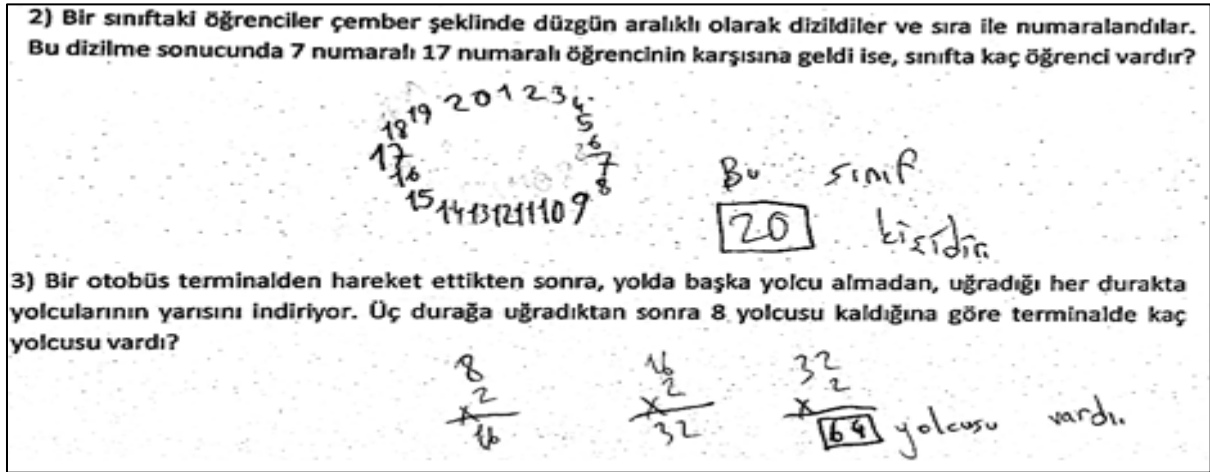 2) Bir sınıftaki öğrenciler çember şeklinde düzgün aralıklı olarak dizildiler ve sıra ile numaralandılar.
Bu dizilme sonucunda 7 numaralı 17 numaralı öğrencinin karşısına geldi ise, sınıfta kaç öğrenci vardır?
20 1 2 3 4
5
6
7
8
9
10
11
12
13
14
15
16
17
18
19
Bu sınıf
20 kişidir.
3) Bir otobüs terminalden hareket ettikten sonra, yolda başka yolcu almadan, uğradığı her durakta
yolcularının yarısını indiriyor. Üç durağa uğradıktan sonra 8 yolcusu kaldığına göre terminalde kaç
yolcusu vardı?
8 16 32
x 2 x 2 x 2
16 32 64 yolcusu vardı.